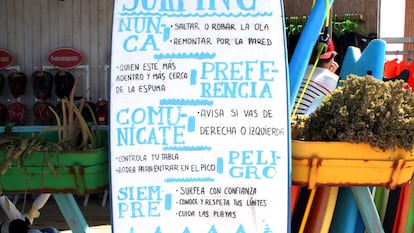 SURFING
NUN
CA
• SALTAR O ROBAR LA OLA
• REMONTAR POR LA PARED
• QUIEN ESTE MÁS
ADENTRO Y MÁS CERCA
DE LA ESPUMA
PREFE
RENCIA
COMU
NÍCATE
• AVISA SI VAS DE
DERECHA O IZQUIERDA
• CONTROLA TU TABLA
• RODEA PARA ENTRAR EN EL PICO
PELI
GRO
SIEM
PRE
• SURFEA CON CONFIANZA
• CONOCE Y RESPETA TUS LÍMITES
• CUIDA LAS PLAYAS
havaianas